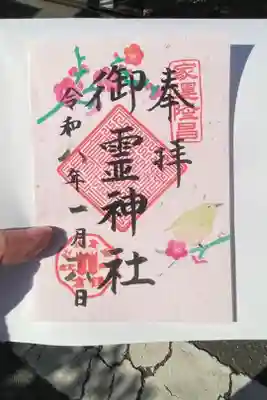 家運隆昌
奉拝
御霊神社
令和八年一月日